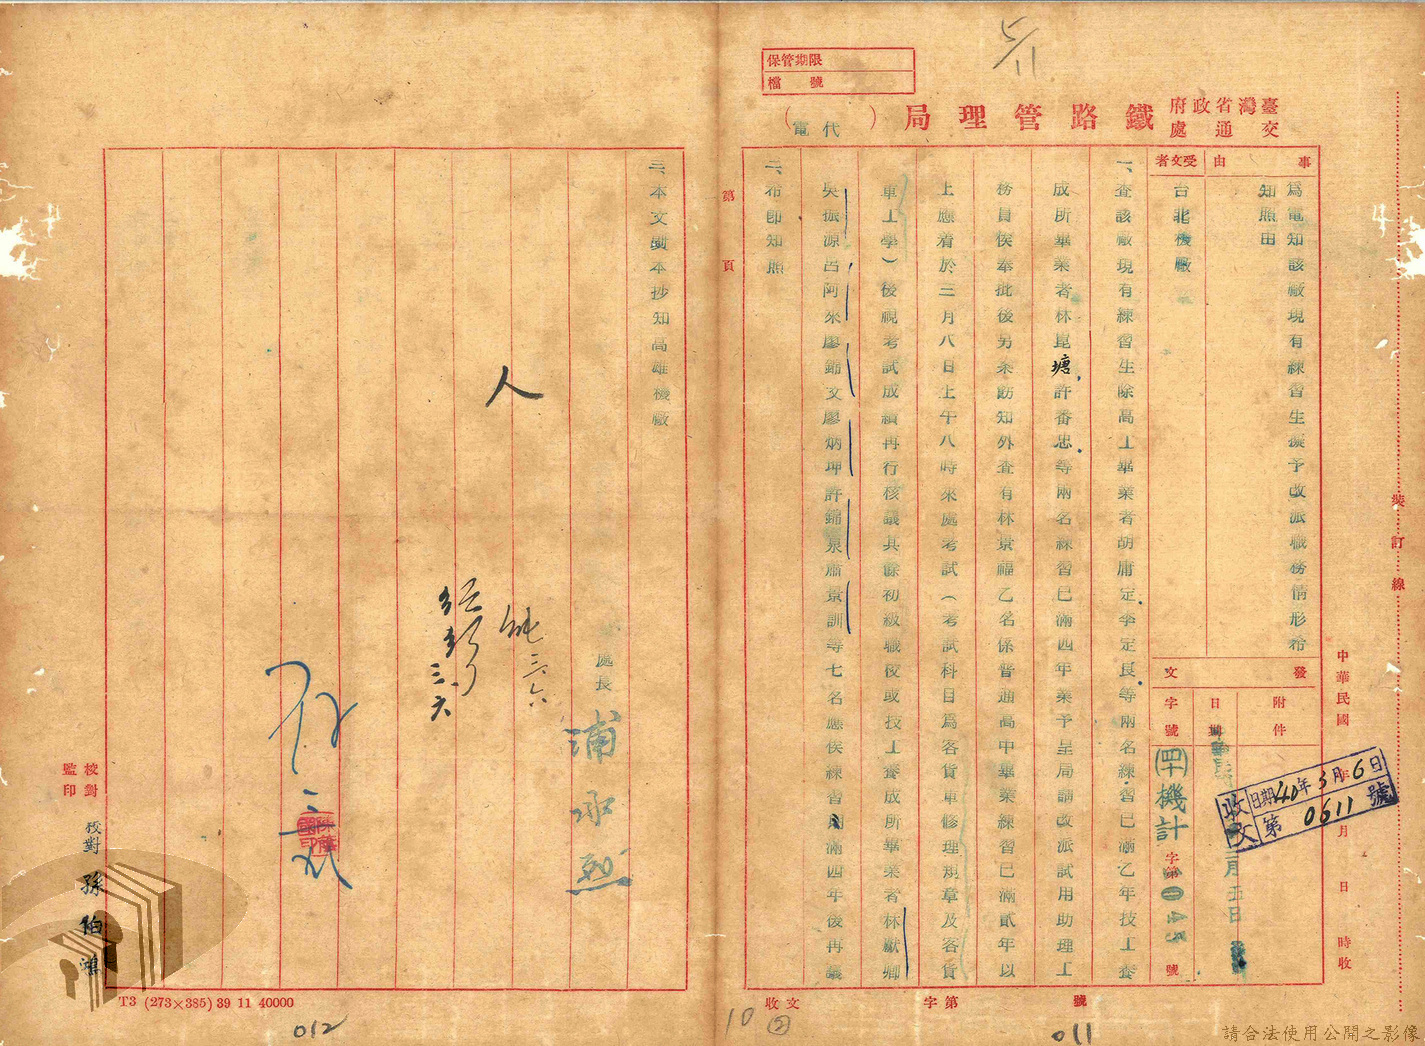 保管期限
檔號
臺灣省政府
交通處
鐵路管理局(代電)
事由
為電知該廠現有練習生擬予改派職務情形希
知照由
受文者
台北機廠
發文
附件
日期
字號
四十機計
字第1043號
三月五日
中華民國 年 月 日 時收
收文
日期40年3月6日
第0611號
一、查該廠現有練習生除高工畢業者胡庸定李定良等兩名練習已滿乙年技工養
成所畢業者林崑塘許番忠等兩名練習已滿四年業予呈局請改派試用助理工
務員俟奉批後另案飭知外查有林景福乙名係普通高中畢業練習已滿貳年以
上應着於三月八日上午八時來處考試(考試科目為客貨車修理規章及客貨
車工學)後視考試成績再行核議其餘初級職校或技工養成所畢業者林獻卿
吳振源呂阿來廖錦文廖炳坤許錦泉蕭景訓等七名應俟練習期滿四年後再議
二、希即知照
第 頁
三、本文副本抄知高雄機廠
處長
浦承烈
人
三六
三六
校對
監印
校對
孫伯鴻
裝訂線
收文 字第 號
T3 (273×385) 39 11 40000
012
10
②
011
5/11
請合法使用公開之影像